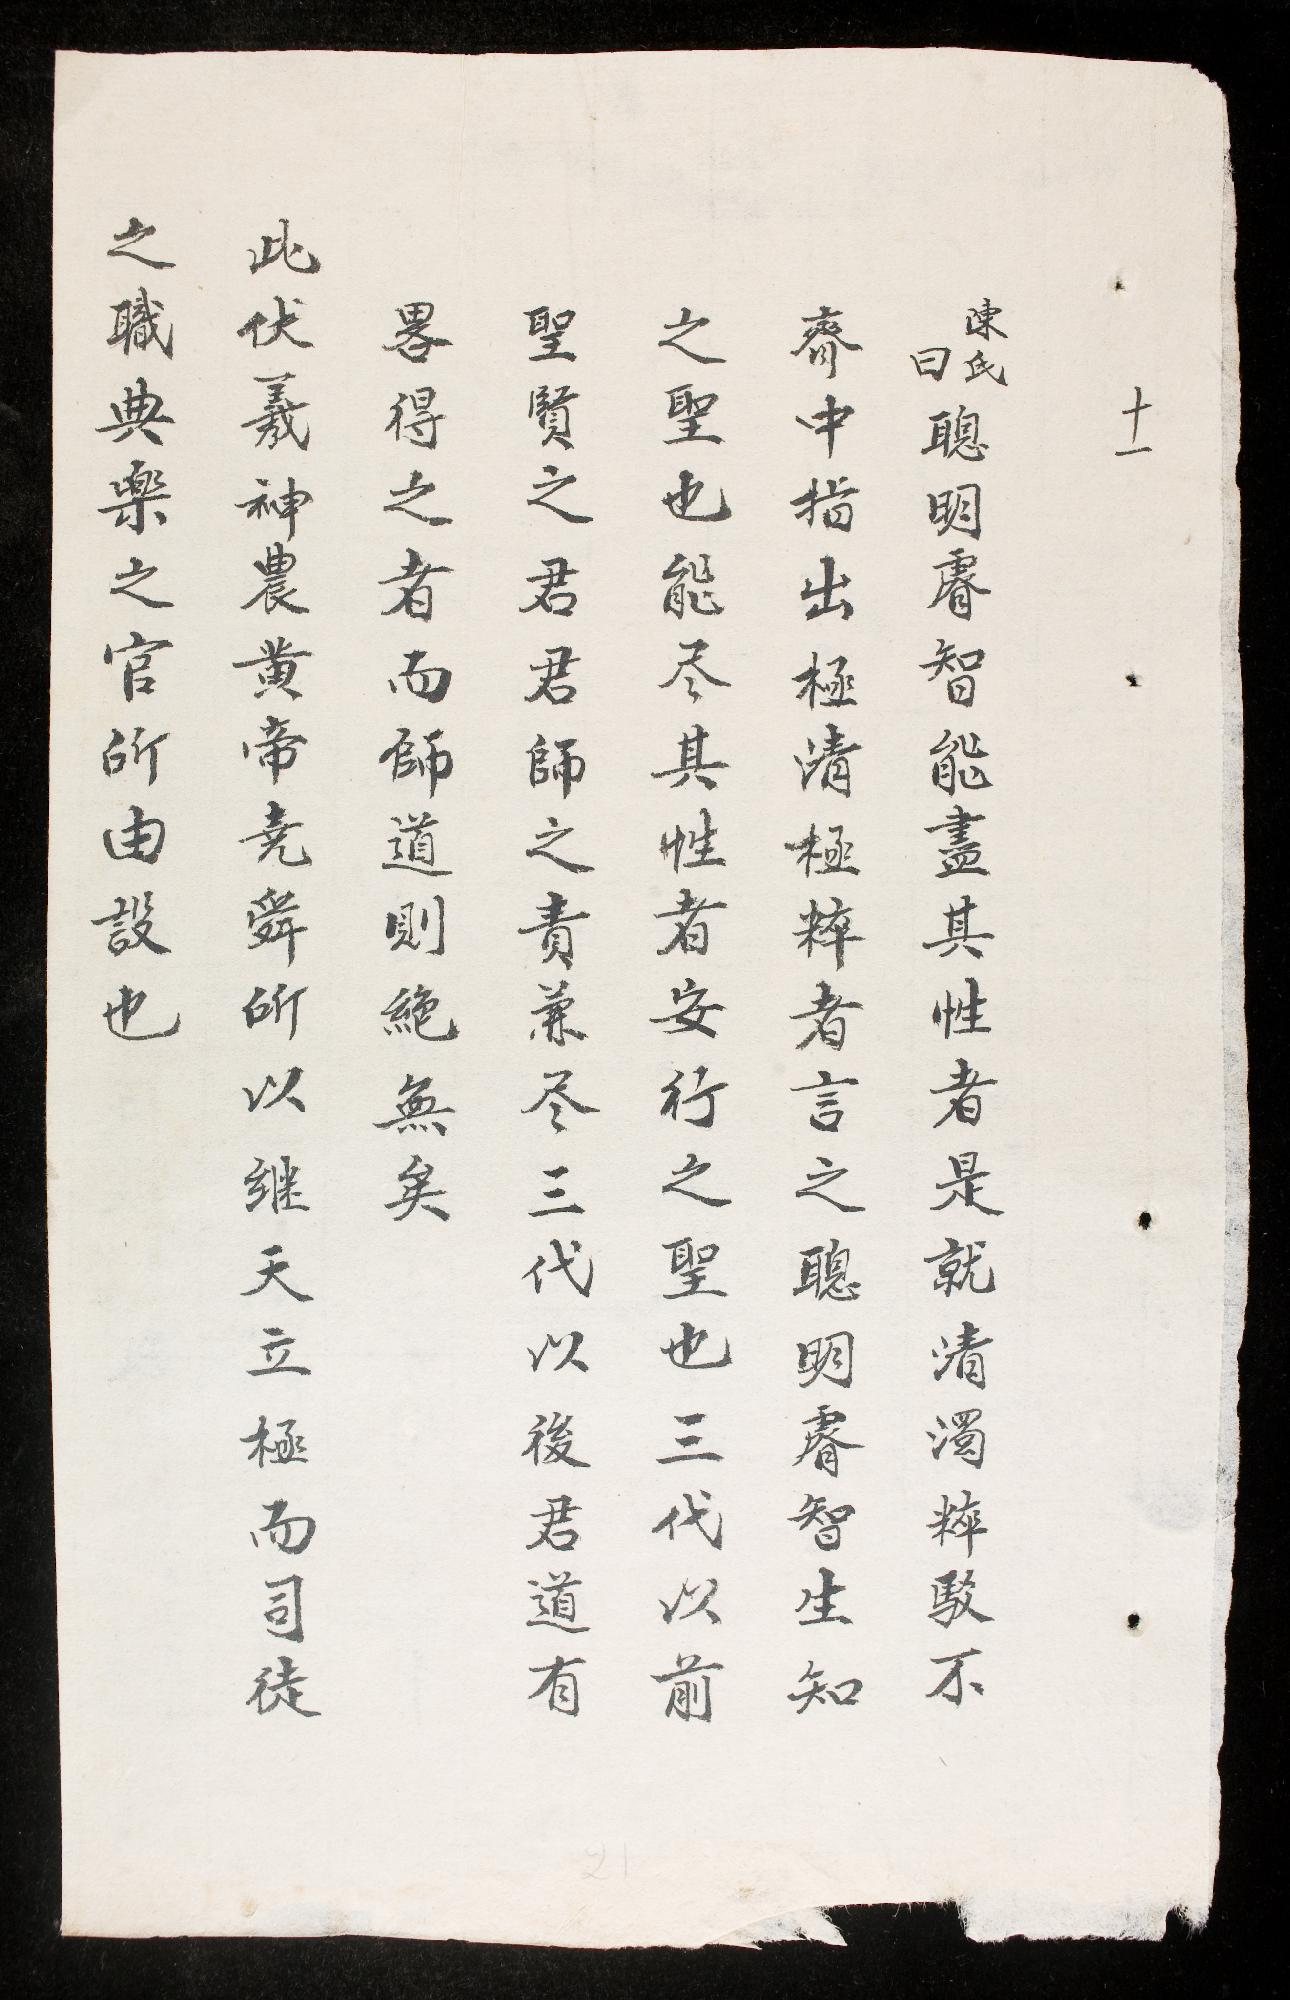 十一
陳氏曰聰明睿智能盡其性者是就清濁粹駁不
齊中指出極清極粹者言之聰明睿智生知
之聖也能尽其性者安行之聖也三代以前
聖賢之君君師之責兼尽三代以後君道有
畧得之者而師道則絶無矣
此伏羲神農黄帝尭舜所以継天立極而司徒
之職典樂之官所由設也
21